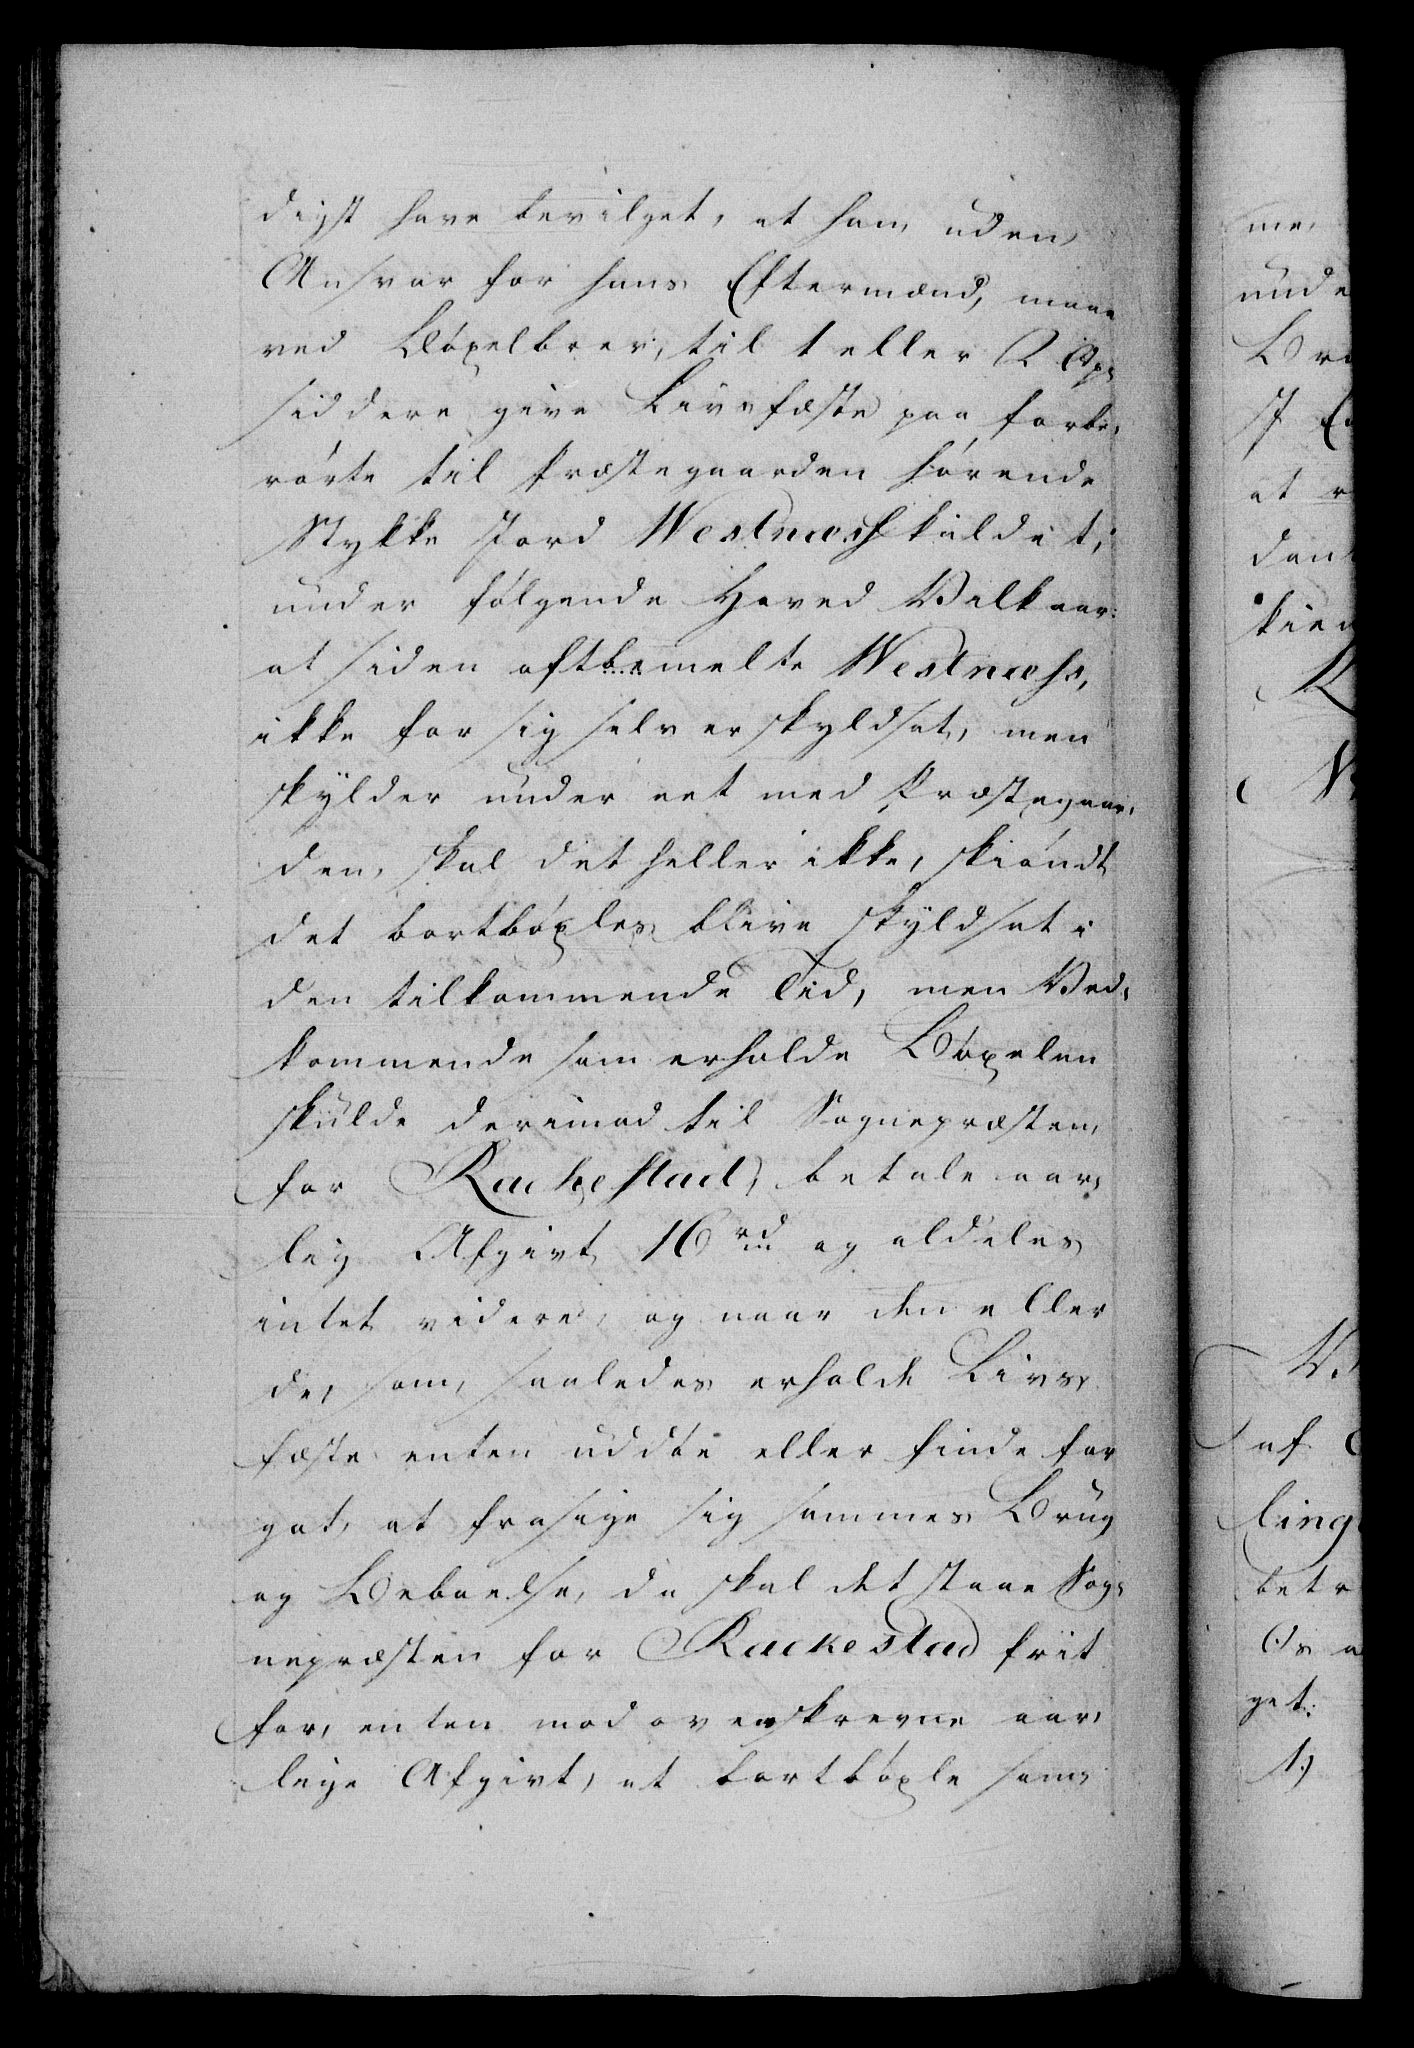 digst have bevilget, at han, uden
Ansvar for hans Eftermænd, maae
ved Böxelbrev, til 1 eller 2 Op-
siddere give Livsfæste paa forbe-
rørte til Præstegaarden hørende
Stykke Jord Westnæss kaldet,
under følgende Hoved Vilkaar:
at siden oftbemelte Westnæss,
ikke for sig selv er skyldsat, men
skylder under eet med Præstegaar-
den, skal det heller ikke, skiøndt
det bortböxles, blive skyldsat i
den tilkommende Tid, men Ved-
kommende som erholde Böxelen
skulde derimod til Sognepræsten
for Rackestad, betale aar-
lig Afgivt 16 rd og aldeles
intet videre, og naar den eller
de, som, saaledes erholde Livs-
fæste enten uddøe eller finde for
got, at frasige sig sammes Brug
og Beboelse, da skal det staae Sog-
nepræsten for Rackestad frit
for, enten mod ovenskrevne aar-
lige Afgivt, at bortböxle sam-
me,
unde
kien
af
betr
get:
1)